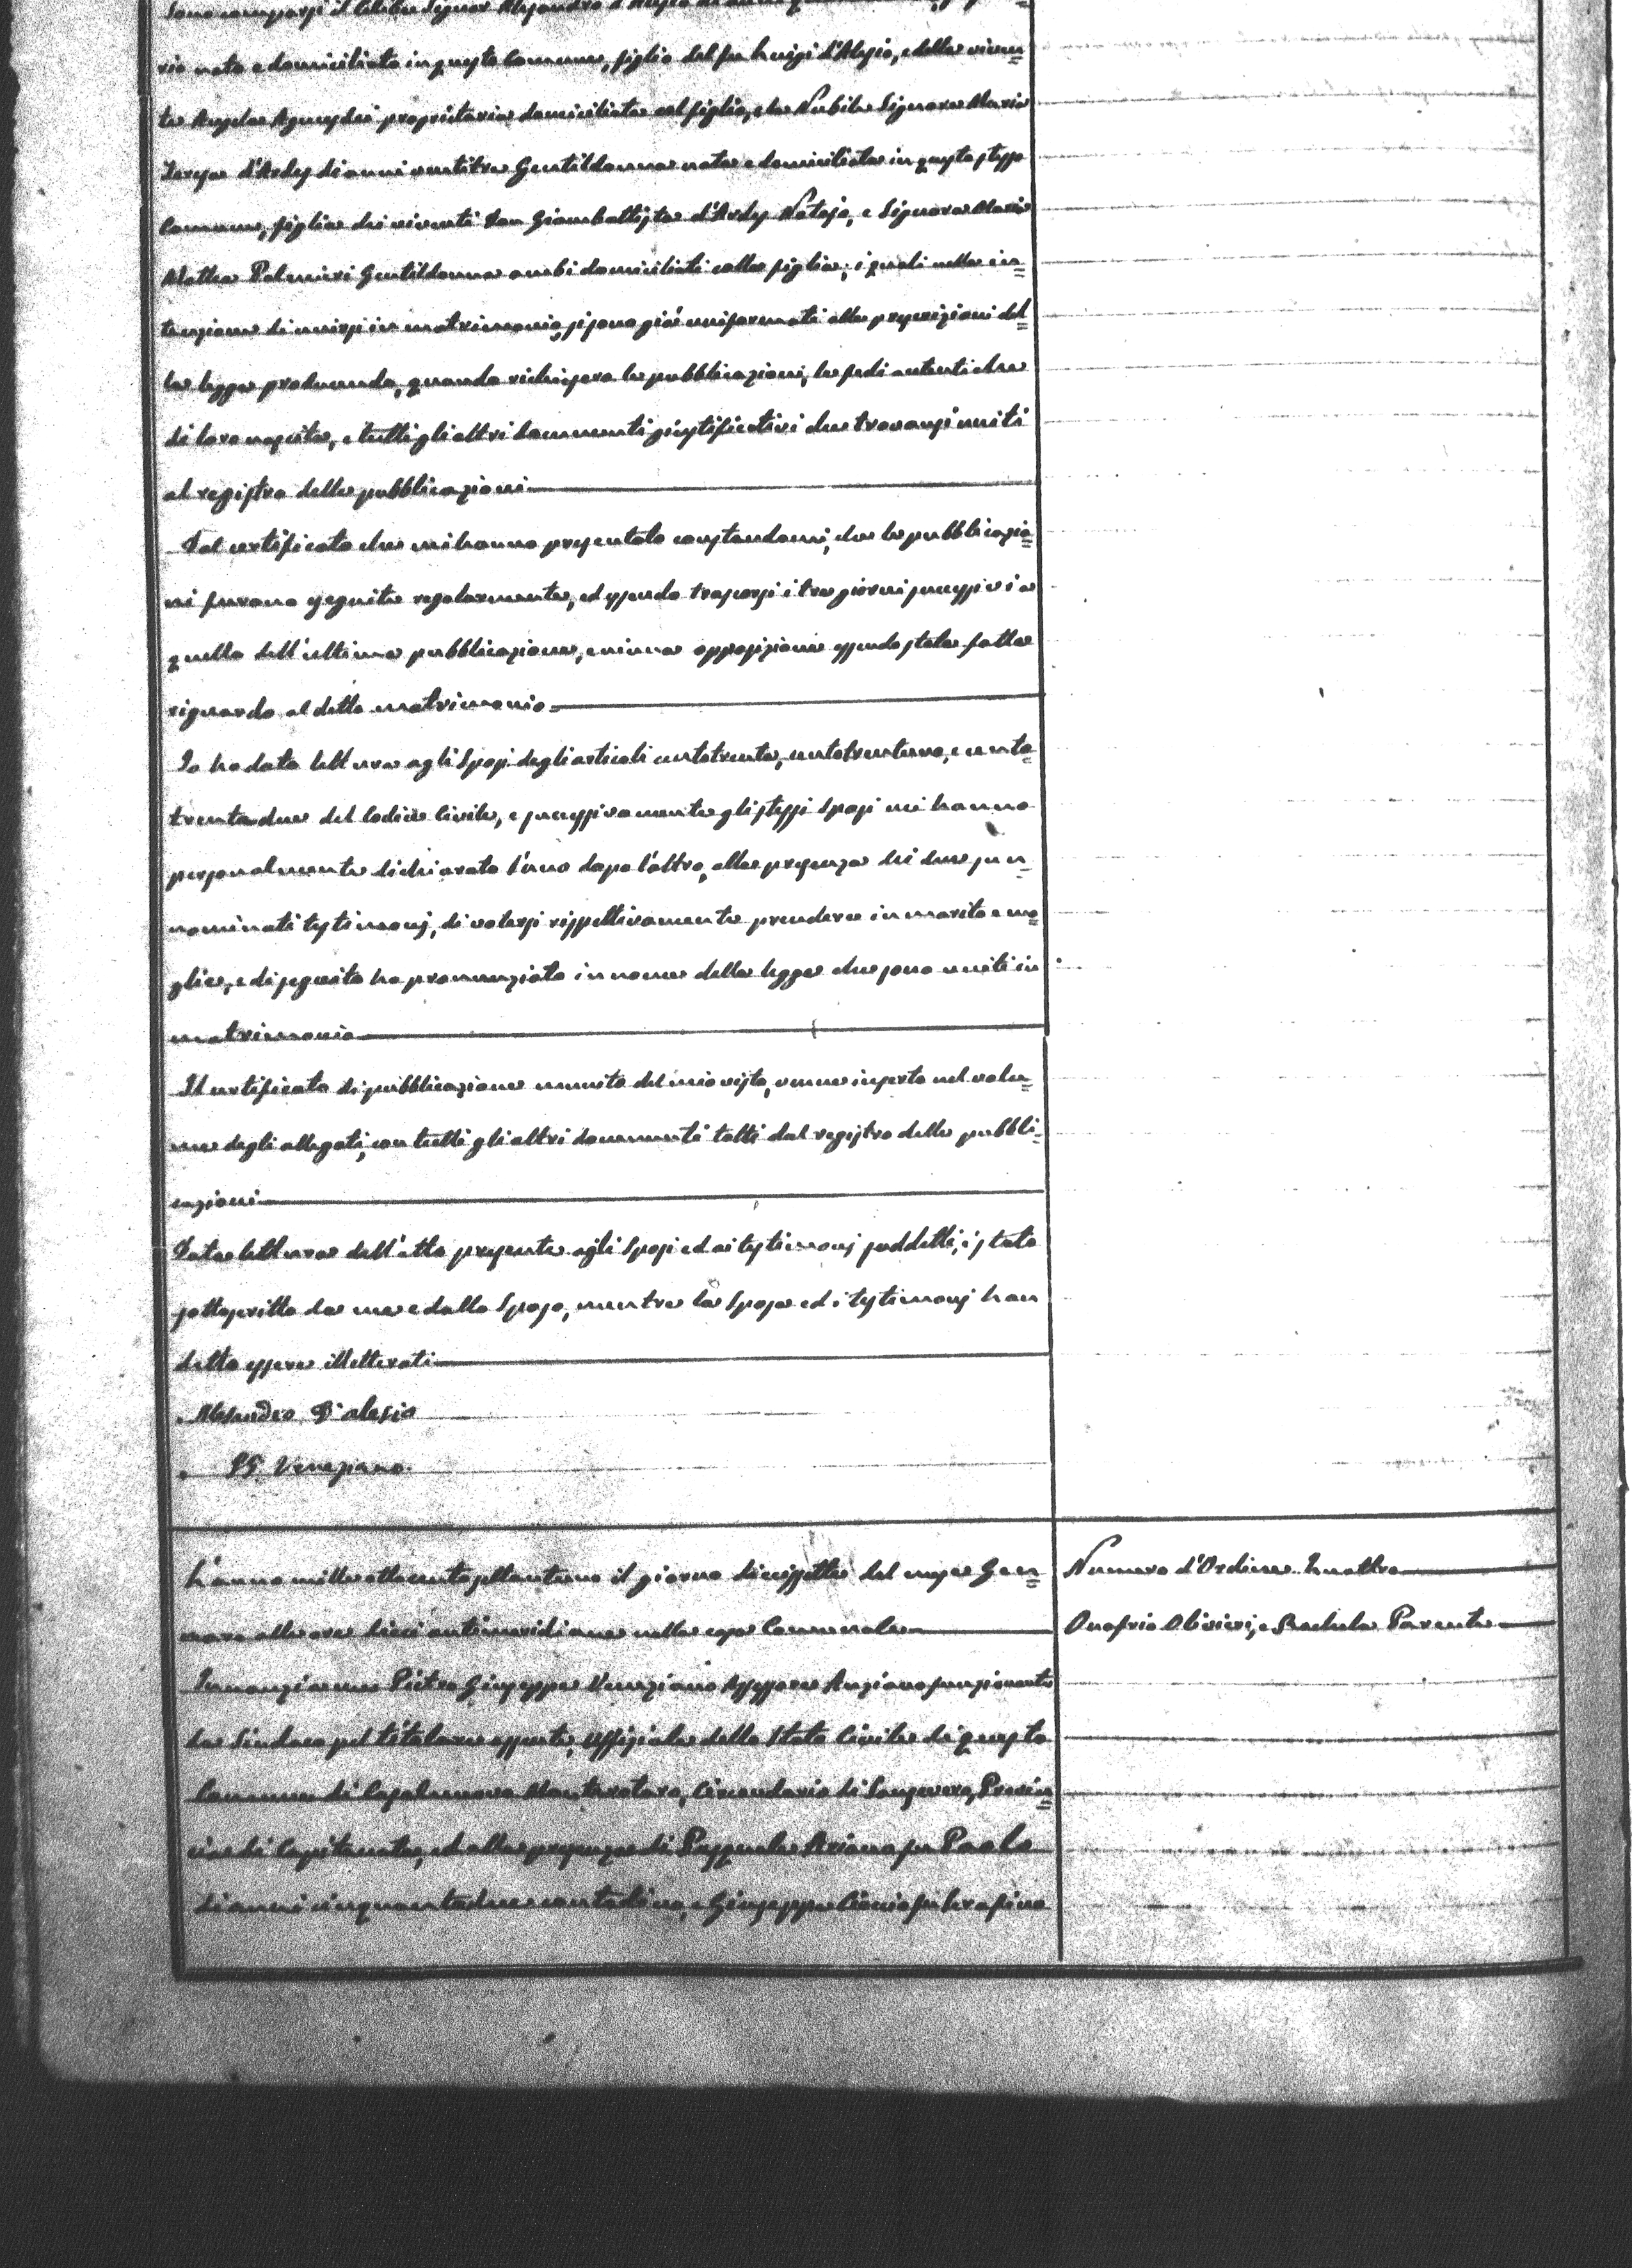 Sono comparsi il Celibe Signor Alesandro d'Alesio di anni
rio nato e domiciliato in questo Comune, figlio del fu Luigi d'Alesio, e della viven=
te Angela proprietaria domiciliata col figlio, e la Nubile Signora Maria
Teresa d'Ardes di anni ventitre Gentildonna nata e domiciliata in questo stesso
Comune, figlia dei viventi Don Giambattista d'Ardes Notajo, e Signora Maria
Mattea Palmieri Gentildonna ambi domiciliati colla figlia; i quali nella in=
tenzione di unirsi in matrimonio, si sono già uniformati alle prescrizioni del=
la legge producendo, quando richiesero le pubblicazioni, le fedi autentiche
di loro nascita, e tutti gli altri documenti giustificativi che trovansi uniti
al registro delle pubblicazioni
Dal certificato che mi hanno presentato constandomi, che le pubblicazio=
ni furono eseguite regolarmente, ed essendo trascorsi i tre giorni successivi a
quello dell'ultima pubblicazione, e niuna opposizione essendo stata fatta
riguardo al detto matrimonio
Io ho dato lettura agli Sposi degli articoli centotrenta, centotrentuno, e cento=
trentadue del Codice Civile, e successivamente gli stessi Sposi mi hanno
personalmente dichiarato l'uno dopo l'altro, alla presenza dei due sun=
nominati testimonj, di volersi rispettivamente prendere in marito e mo=
glie, e di seguito ho pronunziato in nome della legge che sono uniti in
matrimonio
Il certificato di pubblicazione munito del mio visto, venne inserto nel volu=
me degli allegati, con tutti gli altri documenti tolti dal registro delle pubbli=
cazioni
Data lettura dell'atto presente agli Sposi ed ai testimonj suddetti, è stato
sottoscritto da me e dallo Sposo, mentre la Sposa ed i testimonj han
detto essere illetterati
Alesandro D'alesio
P G Veneziano
L'anno mille ottocentosettantuno il giorno diecissette del mese Gen=
naro alle ore dieci antimeridiane nella casa Comunale
Innanzi a me Pietro Giuseppe Veneziano Assessore Anziano funzionante
da Sindaco pel titolare assente, Uffiziale dello Stato Civile di questo
Comune di Casalnuovo Monterotaro, Circondario di Sansevero, Provin=
cia di Capitanata, ed alla presenza di Pasquale Ariano fu Paolo
di anni cinquantadue contadino, e Giuseppe fu Serafino
Numero d'Ordine Quattro
Onofrio Olivieri, e Parente